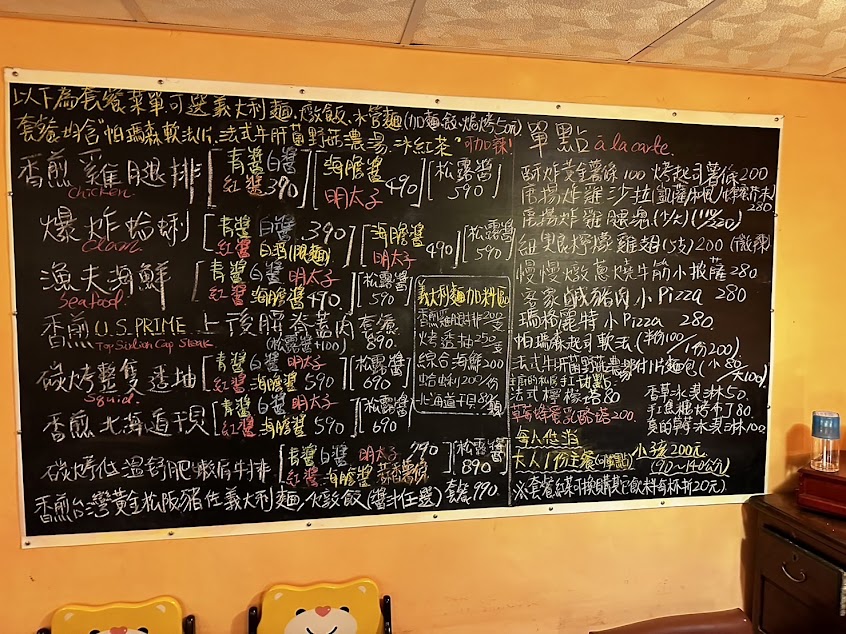 以下為套餐菜單可選義大利麵、燉飯、水管麵(加麵飯、焗烤50元)
套餐均含"帕瑪森軟法1片、法式牛肝菌野菇濃湯、冰紅茶"可加辣!
香煎雞腿排 青醬 白醬 紅醬 390 海膽醬 明太子 490 松露醬 590
chicken
爆炸蛤蜊 青醬 白醬 390 紅醬 白酒(限麵) 海膽醬 明太子 490 松露醬 590
clam
漁夫海鮮 青醬 白醬 明太子 紅醬 海膽醬 490 松露醬 590
Seafood
香煎U.S.PRIME上後腰脊蓋肉套餐 890
Top Sirloin Cap Steak (松露醬+100)
碳烤整隻透抽 青醬 白醬 明太子 紅醬 海膽醬 590 松露醬 690
Squid
香煎北海道干貝 青醬 白醬 明太子 紅醬 海膽醬 590 松露醬 690
碳烤低溫舒肥嫩肩牛排 青醬 白醬 明太子 790 紅醬 海膽醬 松露醬 890
香煎台灣黃金松阪豬佐義大利麵/燉飯(醬汁任選) 套餐 990
義大利麵加料區
香煎雞腿排200/支
烤透抽250/支
綜合海鮮200
蛤蜊200/份
北海道干貝 /顆
單點 à la carte
酥炸黃金薯條100 烤起司薯條200
唐揚炸雞沙拉
280
唐揚炸雞腿塊(小/大)
紐奧良檸檬雞翅( 支)200(微辣)
慢慢燉蔥燒牛筋小披薩 280
客家鹹豬肉小Pizza 280
瑪格麗特小Pizza 280
帕瑪森起司軟法(1份100/ 份200)
法式牛肝菌野菇濃湯附1片麵包(小80/大100)
法式檸檬塔80
香草冰淇淋50
草莓蜂蜜乳酪塔200
手工焦糖烤布丁80
真的草莓冰淇淋100
每人低消
大人1份主餐(可單點) 小孩200元
(90~140公分)
※套餐紅茶可換購其它飲料每杯折20元